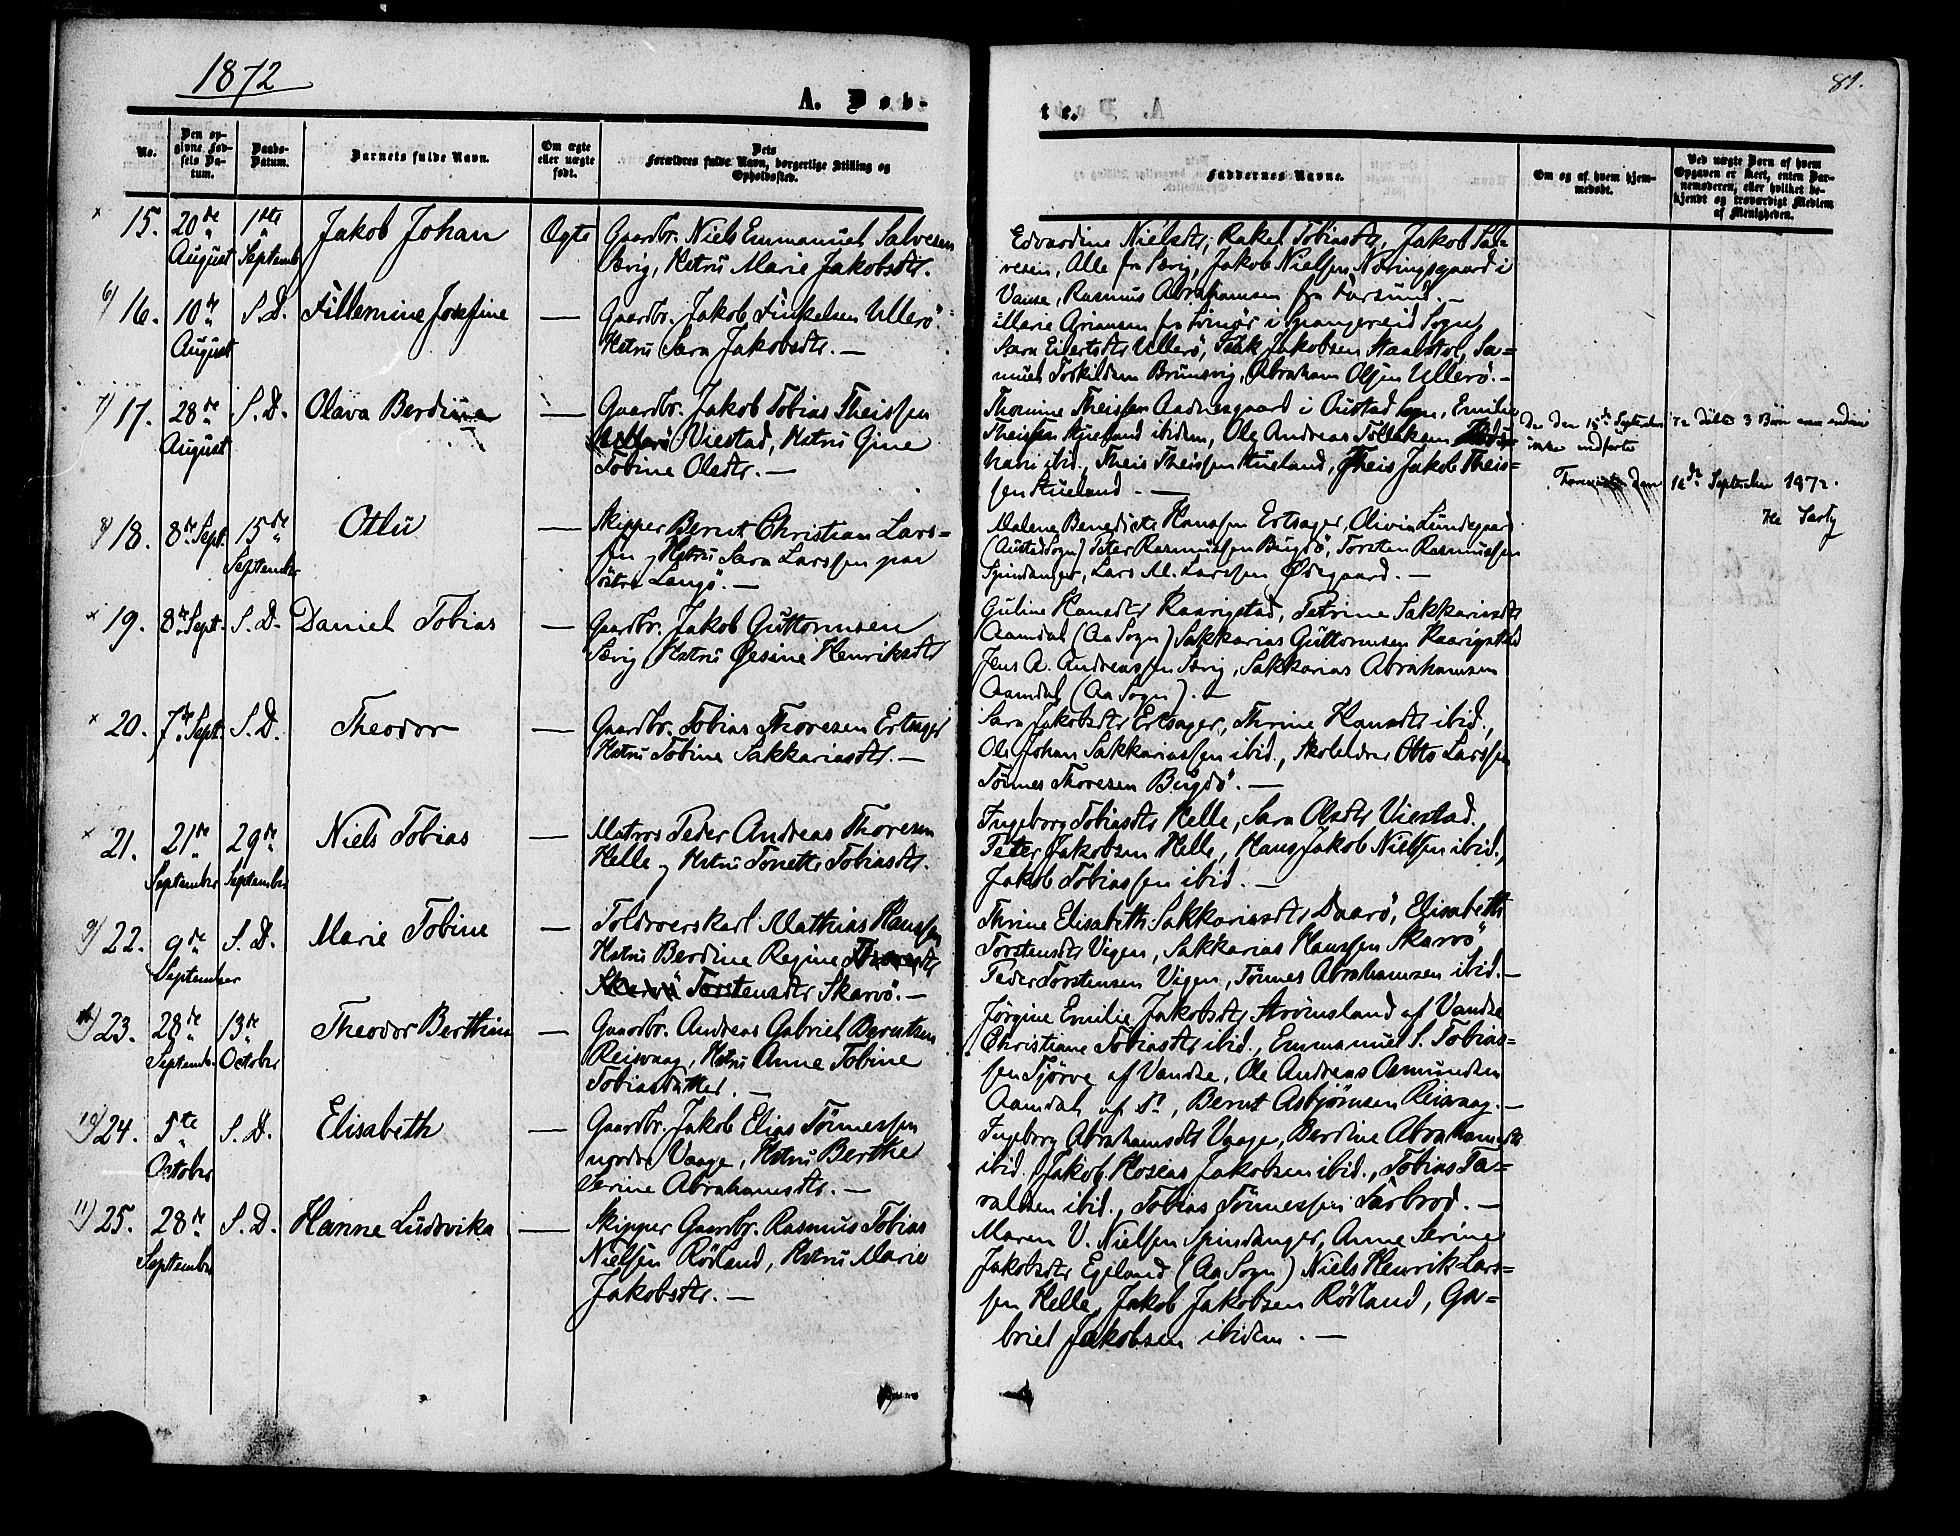 1872
81.
A. Døb-
te.
No.
Den op-
givne Fød-
sels Da-
tum.
Daabs-
Datum.
Barnets fulde Navn.
Om ægte
eller uægte
født.
Dets
Forældres fulde Navn, borgerlige Stilling og
Opholdssted.
Faddernes Navne.
Om og af hvem hjem-
medøbt.
Ved uægte Børn af hvem
Opgaven er skeet, enten Bar-
nemoderen, eller hvilket be-
kjendt og troværdigt Medlem
af Menigheden.
× 15.
20de
August
1ste
Septemb
Jakob Johan
Ægte
Gaardbr. Niels Emmanuel Salvesen
Særig, Hstrü Marie Jakobsdtr.
Edvardine Nielsdtr, Rakel Tobiasdtr, Jakob Sal-
vesen, Alle fra Særig, Jakob Nielsen Næringsgaard i
Vanse, Rasmus Abrahamsen fra Farsund. —
6) 16.
10de
August
S. D.
Fillemine Josefine
—
Gaardbr. Jakob Finkelsen Ullerö.
Hstrü Sara Jakobsdtr. —
Marie i Spangereid Sogn,
Sara Ullerö, Jakobsen Sa=
muel Torkildsen Brünsvig, Abraham Olsen Ullerö. —
7) 17.
28de
August
S. D.
Olava Berdine
—
Gaardbr. Jakob Tobias Theissen
Viestad, Hstrü Gine
Tobine Olsdtr. —
Thomine Theissen Aadnesgaard i Austad Sogn, Emilie
Theissen Stueland ibidem, Ole Andreas
ibid., Theis Theissen Stueland, Theis Jakob Theis=
sen Stueland. —
De den 15de September 72 døbte 3 Børn ere endnu
ikke indførte
den 16de September 1872.
8) 18.
8de Sept.
15de
September
Otlü
—
Skipper Bernt Christian Lars=
sen, Hstrü Sara Larssen paa
östre Langö. —
Malene Benedicte Hanssen Ertsager, Olivia Lundegaard
(Austad Sogn) Peter Rasmussen Bugdö, Torsten Rasmussen
Spindanger, Lars M. Larssen Ødegaard. —
× 19.
8de Sept.
S. D.
Daniel Tobias
—
Gaardbr. Jakob Guttormsen
Særig Hstrü Gesine Henriksdtr
Guline Hansdtr Kaarigstad, Petrine Sakkariasdtr
Aamdal (Aa Sogn) Sakkarias Guttormsen Kaarigstad
Jens A. Andreassen Særig, Sakkarias Abrahamsen
Aamdal (Aa Sogn). —
× 20.
7de Sept.
S. D.
Theodor
—
Gaardbr. Tobias Thoresen Ertsager
Hstrü Tobine Sakkariasdtr. —
Sara Jakobsdtr Ertsager, Thrine Hansdtr ibid.,
Ole Johan Sakkariassen ibid., Skoleldrer Otto Larssen
Tönnes Thoresen Bugdö. —
× 21.
21de
September
29de
September
Niels Tobias
—
Matros Peder Andreas Thoresen
Helle, Hstrü Tonette Tobiasdtr.
Ingeborg Tobiasdtr Helle, Sara Olsdtr Viestad.,
Peter Jakobsen Helle, Hans Jakob Nielsen ibid.,
Jakob Tobiassen ibid. —
9) 22.
9de
September
S. D.
Marie Tobine
—
Toldroerskarl Mathias Hanssen
Hstrü Berdine Regine
Torstensdtr Skarvö. —
Thrine Elisabeth Sakkariasdtr Daarö, Elisabeth
Torstensdtr Vigen, Sakkarias Hanssen Skarvö
Peder Torstensen Vigen, Tönnes Abrahamsen ibid. —
23.
28de
September
13de
October
Theodor Berthin
—
Gaardbr. Andreas Gabriel Berntsen
Reisvaag, Hstrü Anne Tobine
Tobiasdatter. —
Jørgine Emilie Jakobsdtr Strömsland af Vandse
Christiane Tobiasdtr ibid., Emmanuel S. Tobias=
sen Tjörve af Vandse, Ole Andreas Asmundsen
Aamdal af Do, Bernt Asbjörnsen Reisvaag. —
10) 24.
5te
October
S. D.
Elisabeth
—
Gaardbr. Jakob Elias Tönnessen
nordre Vaage, Hstrü Berthe
Serine Abrahamsdtr. —
Ingeborg Abrahamsdtr Vaage, Berdine Abrahamsdtr
ibid., Jakob Hoseas Jakobsen ibid., Tobias Ta=
raldsen ibid., Tobias Tönnessen Farbrod. —
11) 25.
28de
September
S. D.
Hanne Ludovika
—
Skipper Gaardbr. Rasmus Tobias
Nielsen Rödland, Hstrü Marie
Jakobsdtr. —
Maren V. Nielsen Spindanger, Anne Serine
Jakobsdtr Egeland (Aa Sogn) Niels Henrik Lars=
sen Helle, Jakob Jakobsen Rödland, Ga=
briel Jakobsen ibidem. —